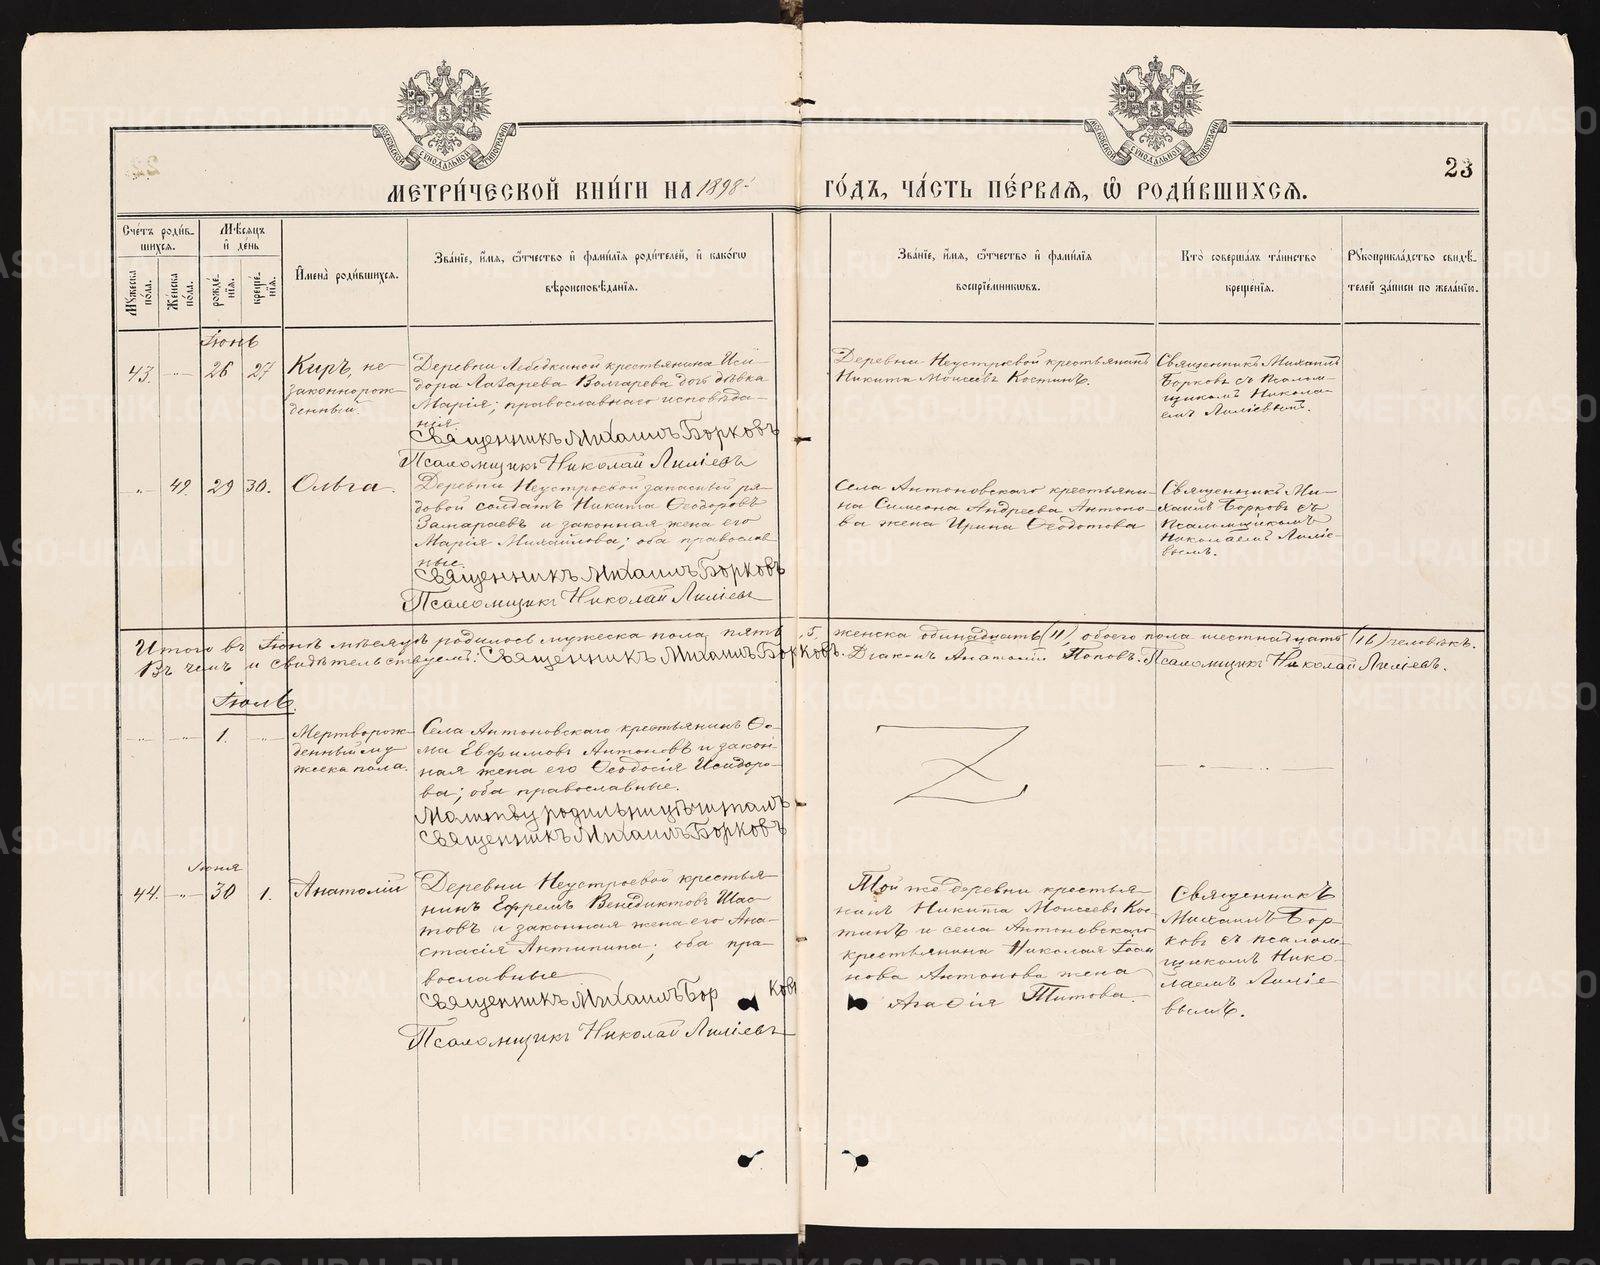 МОСКОВСКОЙ СѴНОДАЛЬНОЙ ТИПОГРАФІИ
МОСКОВСКОЙ СѴНОДАЛЬНОЙ ТИПОГРАФІИ
23
МЕТРИ́ЧЕСКОЙ КНИ́ГИ НА 1898
ГО́ДЪ, ЧА́СТЬ ПЕ́РВАѦ, Ѡ҆ РОДИ́ВШИХСѦ.
Сче́тъ роди́в-
шихсѧ.
Мѣ́сѧцъ
и҆ де́нь
Мꙋ́жеска
по́ла.
Же́нска
по́ла.
рожде́-
нїѧ.
креще́-
нїѧ.
И҆мена̀ роди́вшихсѧ.
Зва́нїе, и҆́мѧ, ѻ҆́тчество и҆ фами́лїѧ роди́телей, и҆ како́гѡ
вѣроисповѣ́данїѧ.
Зва́нїе, и҆́мѧ, ѻ҆́тчество и҆ фами́лїѧ
воспрїе́мникѡвъ.
Кто̀ соверша́лъ та́инство
креще́нїѧ.
Рꙋкоприкла́дство свидѣ́-
телей за́писи по жела́нїю.
Іюнь
43. -"- 26 27
Киръ, не-
законнорож-
денный.
Деревни Лебедкиной крестьянина Иси-
дора Лазарева дочь дѣвка
Марія; православнаго исповѣда-
нія.
Священникъ Михаилъ Борковъ
Псаломщикъ Николай Лиліевъ
Деревни Неустроевой крестьянинъ
Никита Моисеевъ Костинъ.
Священникъ Михаилъ
Борковъ съ Псалом-
щикомъ Никола-
емъ Лиліевымъ.
-"- 49. 29 30.
Ольга.
Деревни Неустроевой запасный ря-
довой солдатъ Никита Ѳеодоровъ
Замараевъ и законная жена его
Марія Михайлова; оба православ-
ные.
Священникъ Михаилъ Борковъ
Псаломщикъ Николай Лиліевъ
Села Антоновскаго крестьяни-
на Симеона Андреева Антоно-
ва жена Ирина Ѳеодотова
Священникъ Ми-
хаилъ Борковъ съ
Псаломщикомъ
Николаемъ Лиліе-
вымъ.
Итого въ Іюнѣ мѣсяцѣ родилось мужеска пола пять, 5, женска одинадцать (11), обоего пола шестнадцать (16) человѣкъ.
Въ чемъ и свидѣтельствуемъ: Священникъ Михаилъ Борковъ. Діаконъ Анатолій Поповъ. Псаломщикъ Николай Лиліевъ.
Іюль.
-"- -"- 1. -"-
Мертворож-
денный му-
жеска пола.
Села Антоновскаго крестьянинъ Ѳо-
ма Евфимовъ Антоновъ и закон-
ная жена его Ѳеодосія Исидоро-
ва; оба православные.
Молитву родильницѣ читалъ
Священникъ Михаилъ Борковъ
Z
Іюня
44. -"- 30 1.
Анатолій
Деревни Неустроевой крестья-
нинъ Ефремъ Венедиктовъ Шас-
товъ и законная жена его Ана-
стасія Антипина; оба пра-
вославные
Священникъ Михаилъ Борковъ
Псаломщикъ Николай Лиліевъ
Той же деревни крестья-
нинъ Никита Моисеевъ Кос-
тинъ и села Антоновскаго
крестьянина Николая Іоан-
нова Антонова жена
Агафія Титова.
Священникъ
Михаилъ Бор-
ковъ съ псалом-
щикомъ Нико-
лаемъ Лиліе-
вымъ.
METRIKI.GASO-URAL.RU